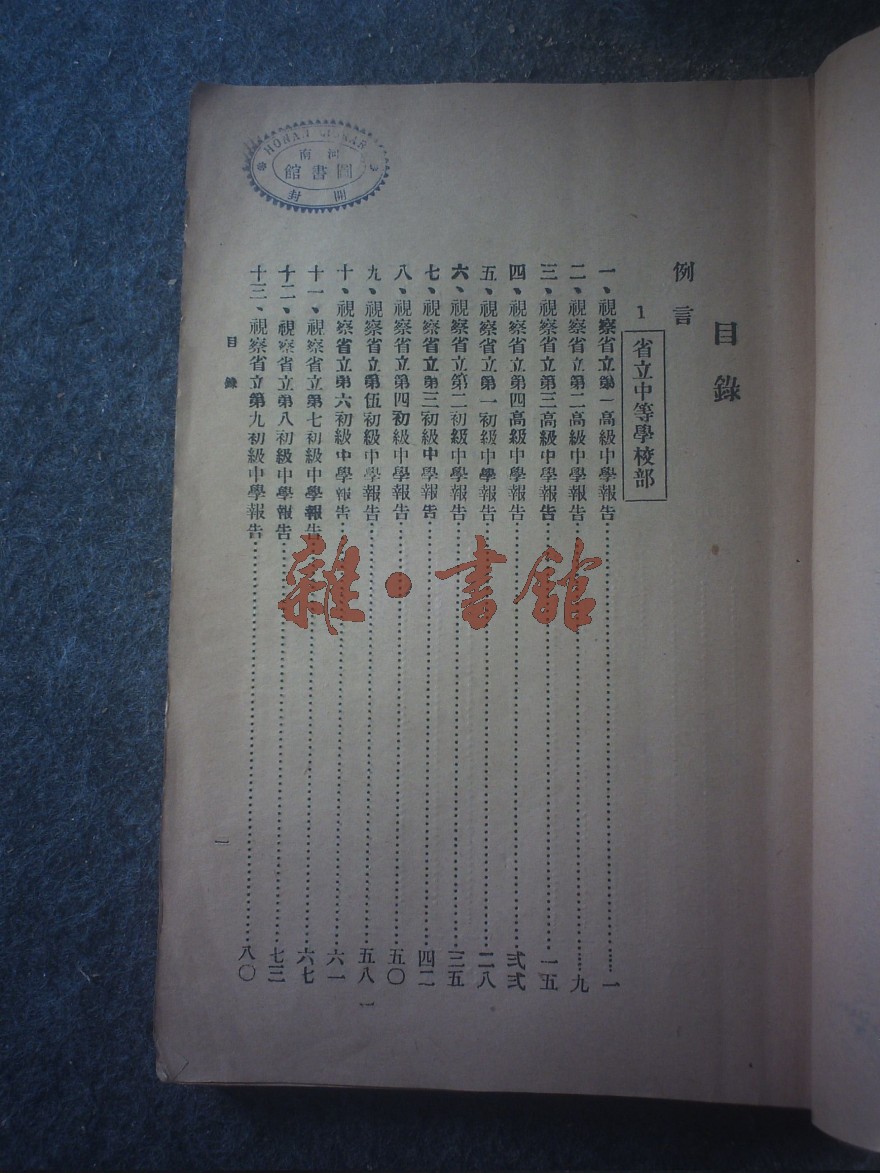 目錄
例言
1 省立中等學校部
一、視察省立第一高級中學報告……一
二、視察省立第二高級中學報告……九
三、視察省立第三高級中學報告……一五
四、視察省立第四高級中學報告……弍弍
五、視察省立第一初級中學報告……二八
六、視察省立第二初級中學報告……三五
七、視察省立第三初級中學報告……四二
八、視察省立第四初級中學報告……五〇
九、視察省立第伍初級中學報告……五八
十、視察省立第六初級中學報告……六一
十一、視察省立第七初級中學報告……六七
十二、視察省立第八初級中學報告……七三
十三、視察省立第九初級中學報告……八〇
目錄
一
一
河南
圖書館
開封
雜·書館